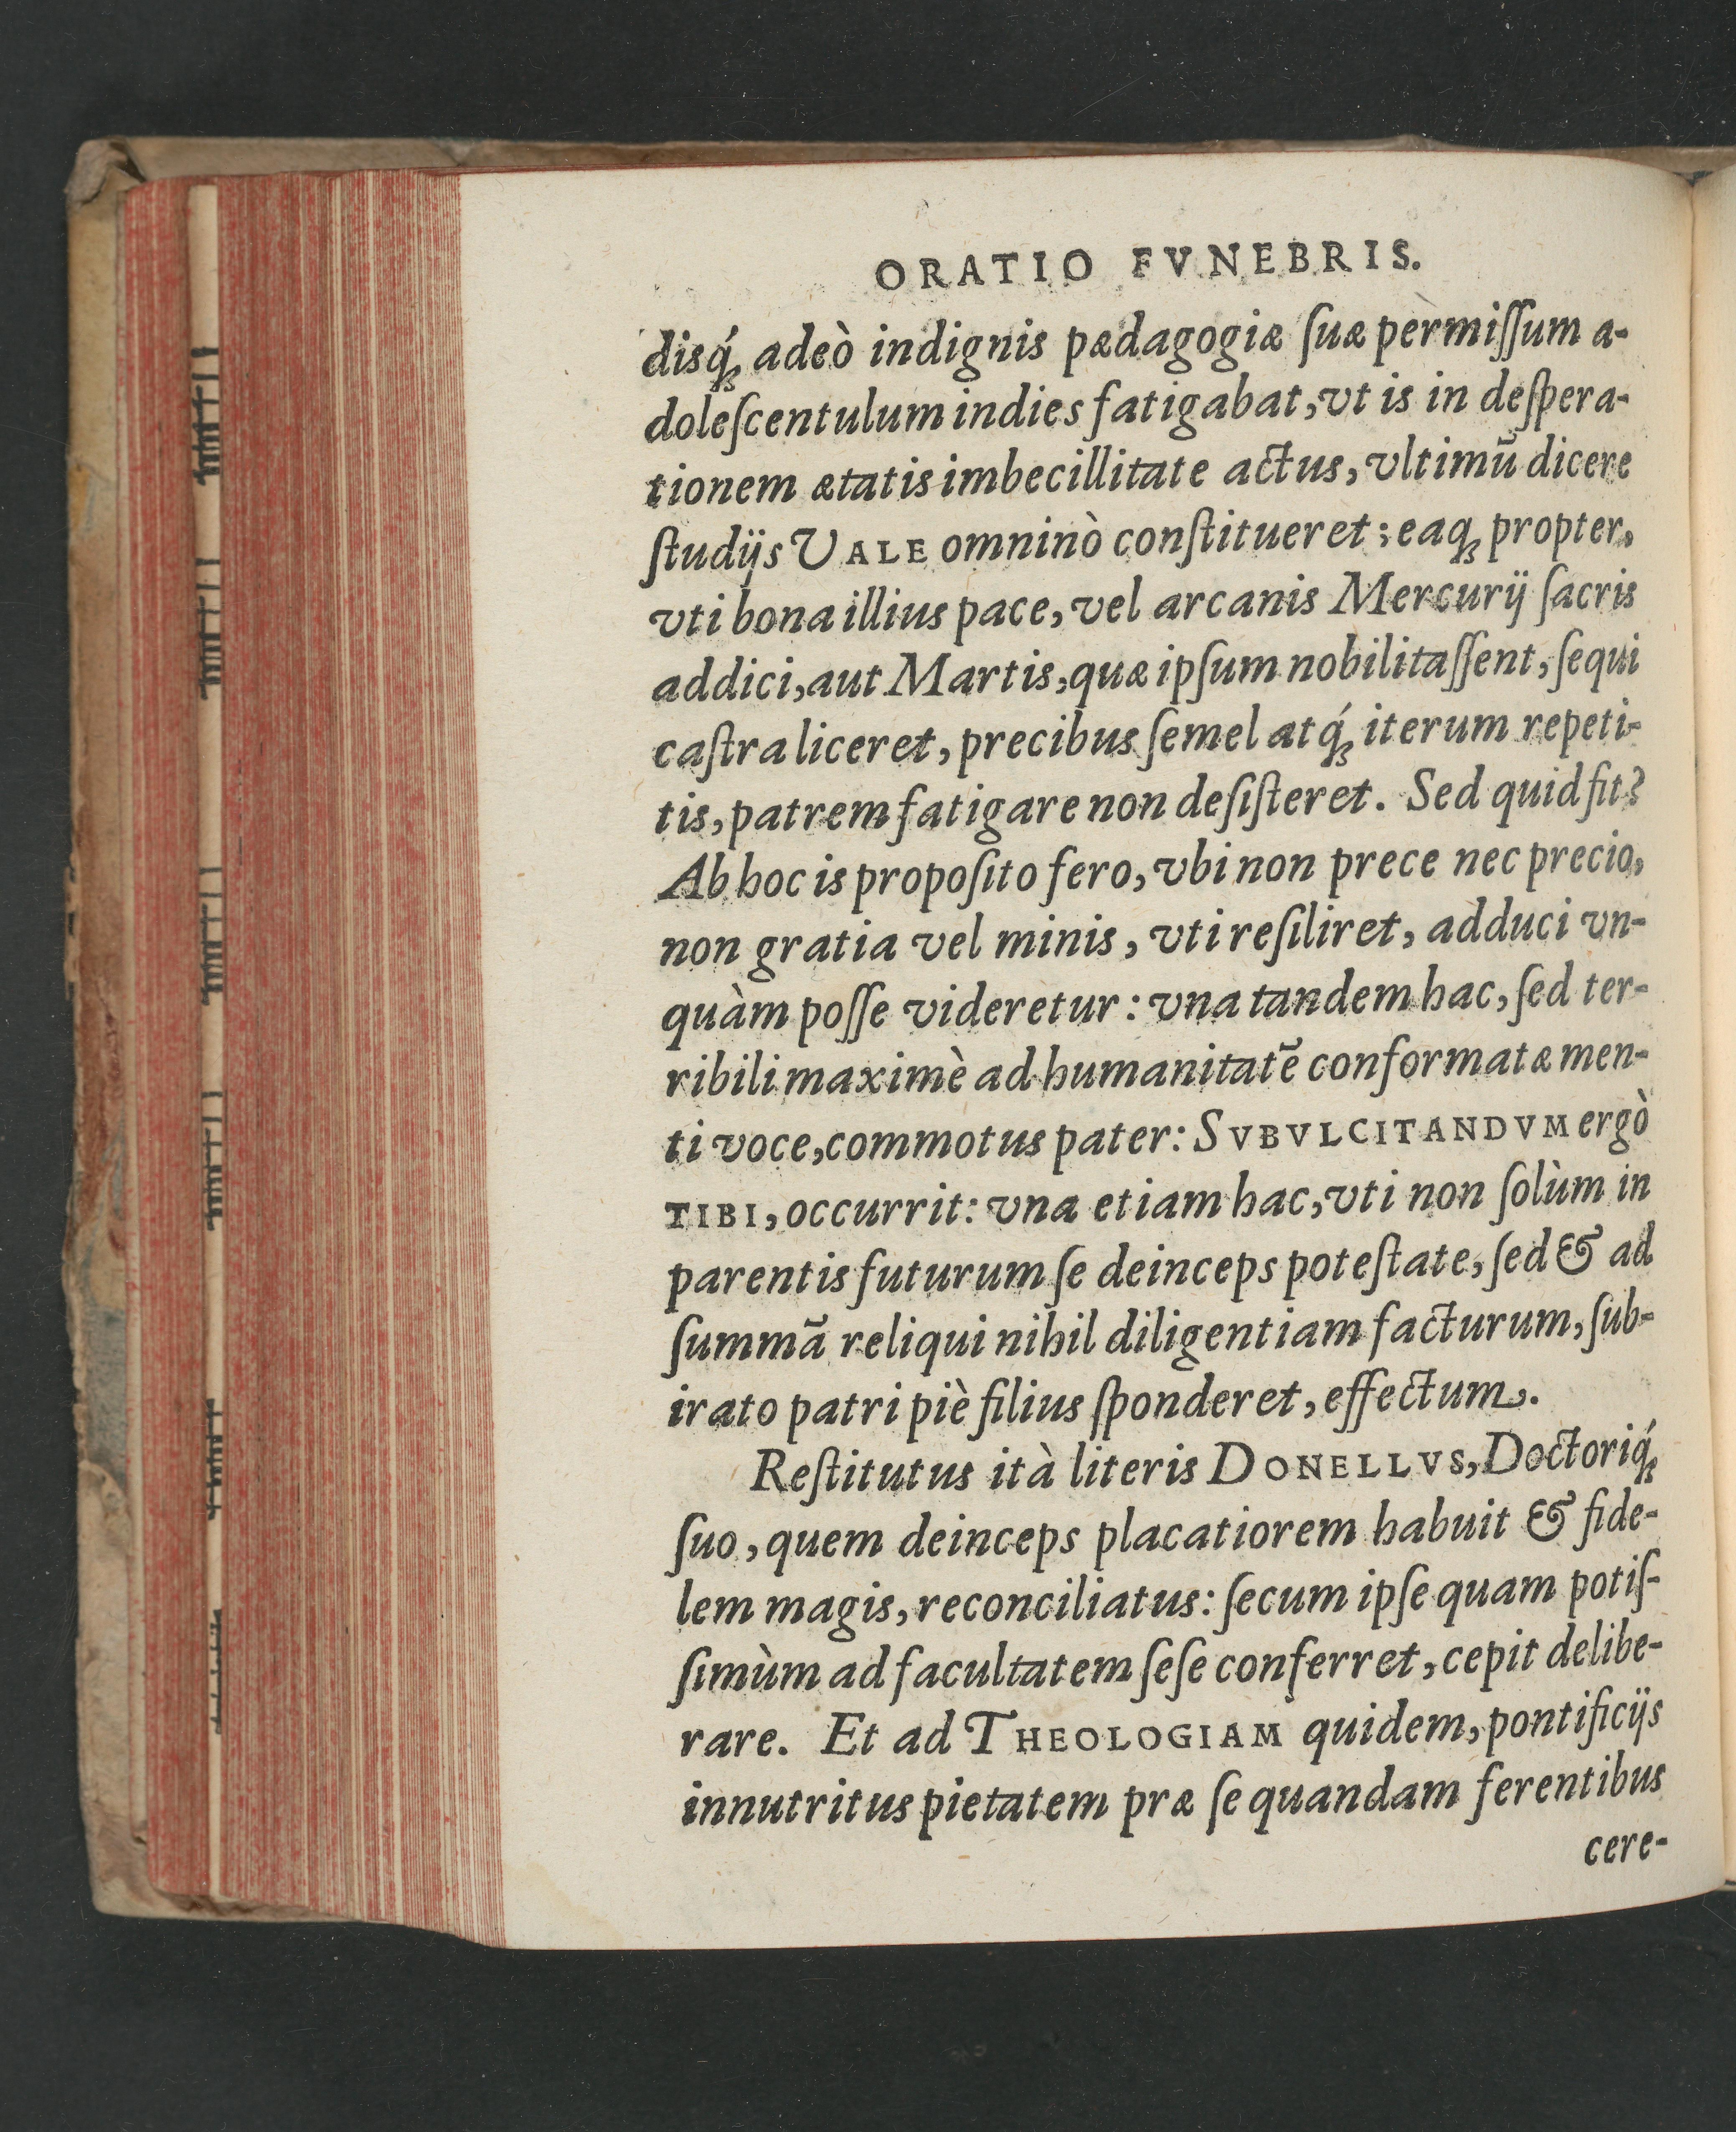 ORATIO FVNEBRIS.
disq́ꝫ adeò indignis pædagogiæ ſuæ pèrmiſſum a-
doleſcentulum indies fatigabat, vt is in deſpera-
tionem ætatis imbecillitate actus, vltimũ dicere
ſtudijs VALE omninò conſtitueret; eaqꝫ propter,
vti bona illius pace, vel arcanis Mercurij ſacris
addici, aut Martis, quæ ipſum nobilitaſſent, ſequi
caſtra liceret, precibus ſemel atq́ꝫ iterum repeti-
tis, patrem fatigare non deſiſteret. Sed quid fit?
Ab hoc is propoſito fero, vbi non prece nec precio,
non gratia vel minis, vti reſiliret, adduci vn-
quàm poſſe videretur: vna tandem hac, ſed ter-
ribili maximè ad humanitatẽ conformatæ men-
ti voce, commotus pater: SVBVLCITANDVM ergò
TIBI, occurrit: vna etiam hac, vti non ſolùm in
parentis futurum ſe deinceps poteſtate, ſed & ad
ſummã reliqui nihil diligentiam facturum, ſub-
irato patri piè filius ſponderet, effectum.
Reſtitutus ità literis DONELLVS, Doctoriq́ꝫ
ſuo, quem deinceps placatiorem habuit & fide-
lem magis, reconciliatus: ſecum ipſe quam potiſ-
ſimùm ad facultatem ſeſe conferret, cepit delibe-
rare. Et ad THEOLOGIAM quidem, pontificijs
innutritus pietatem præ ſe quandam ferentibus
cere-